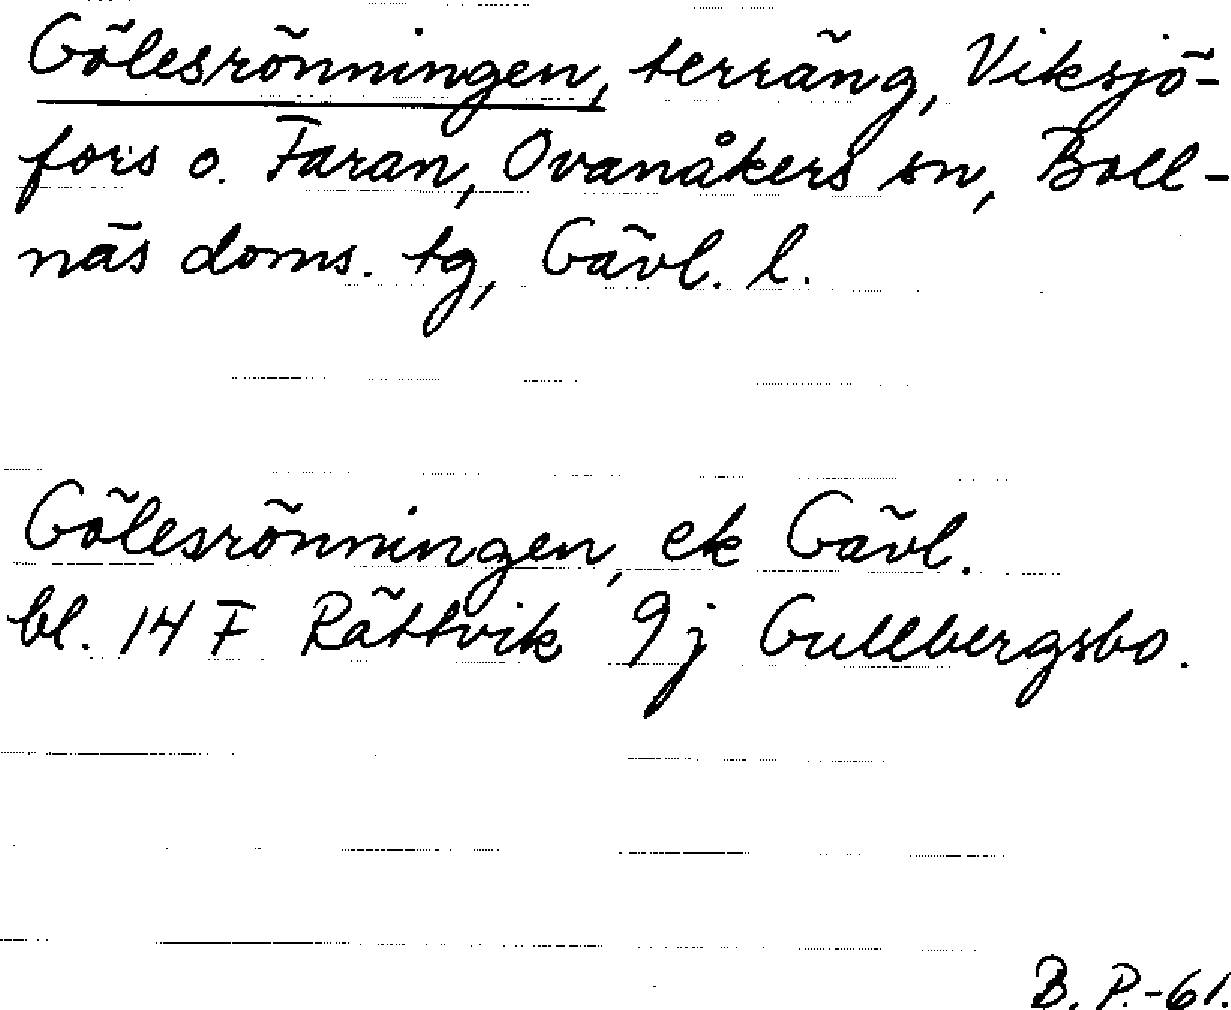 Gölesrönningen, terräng, Viksjö-
fors o. Faran, Ovanåkers sn, Boll-
näs doms. tg, Gävl. l.
Gölesrönningen, ek Gävl.
bl. 14 F Rättvik 9j Gullbergsbo.
B. P.-61.